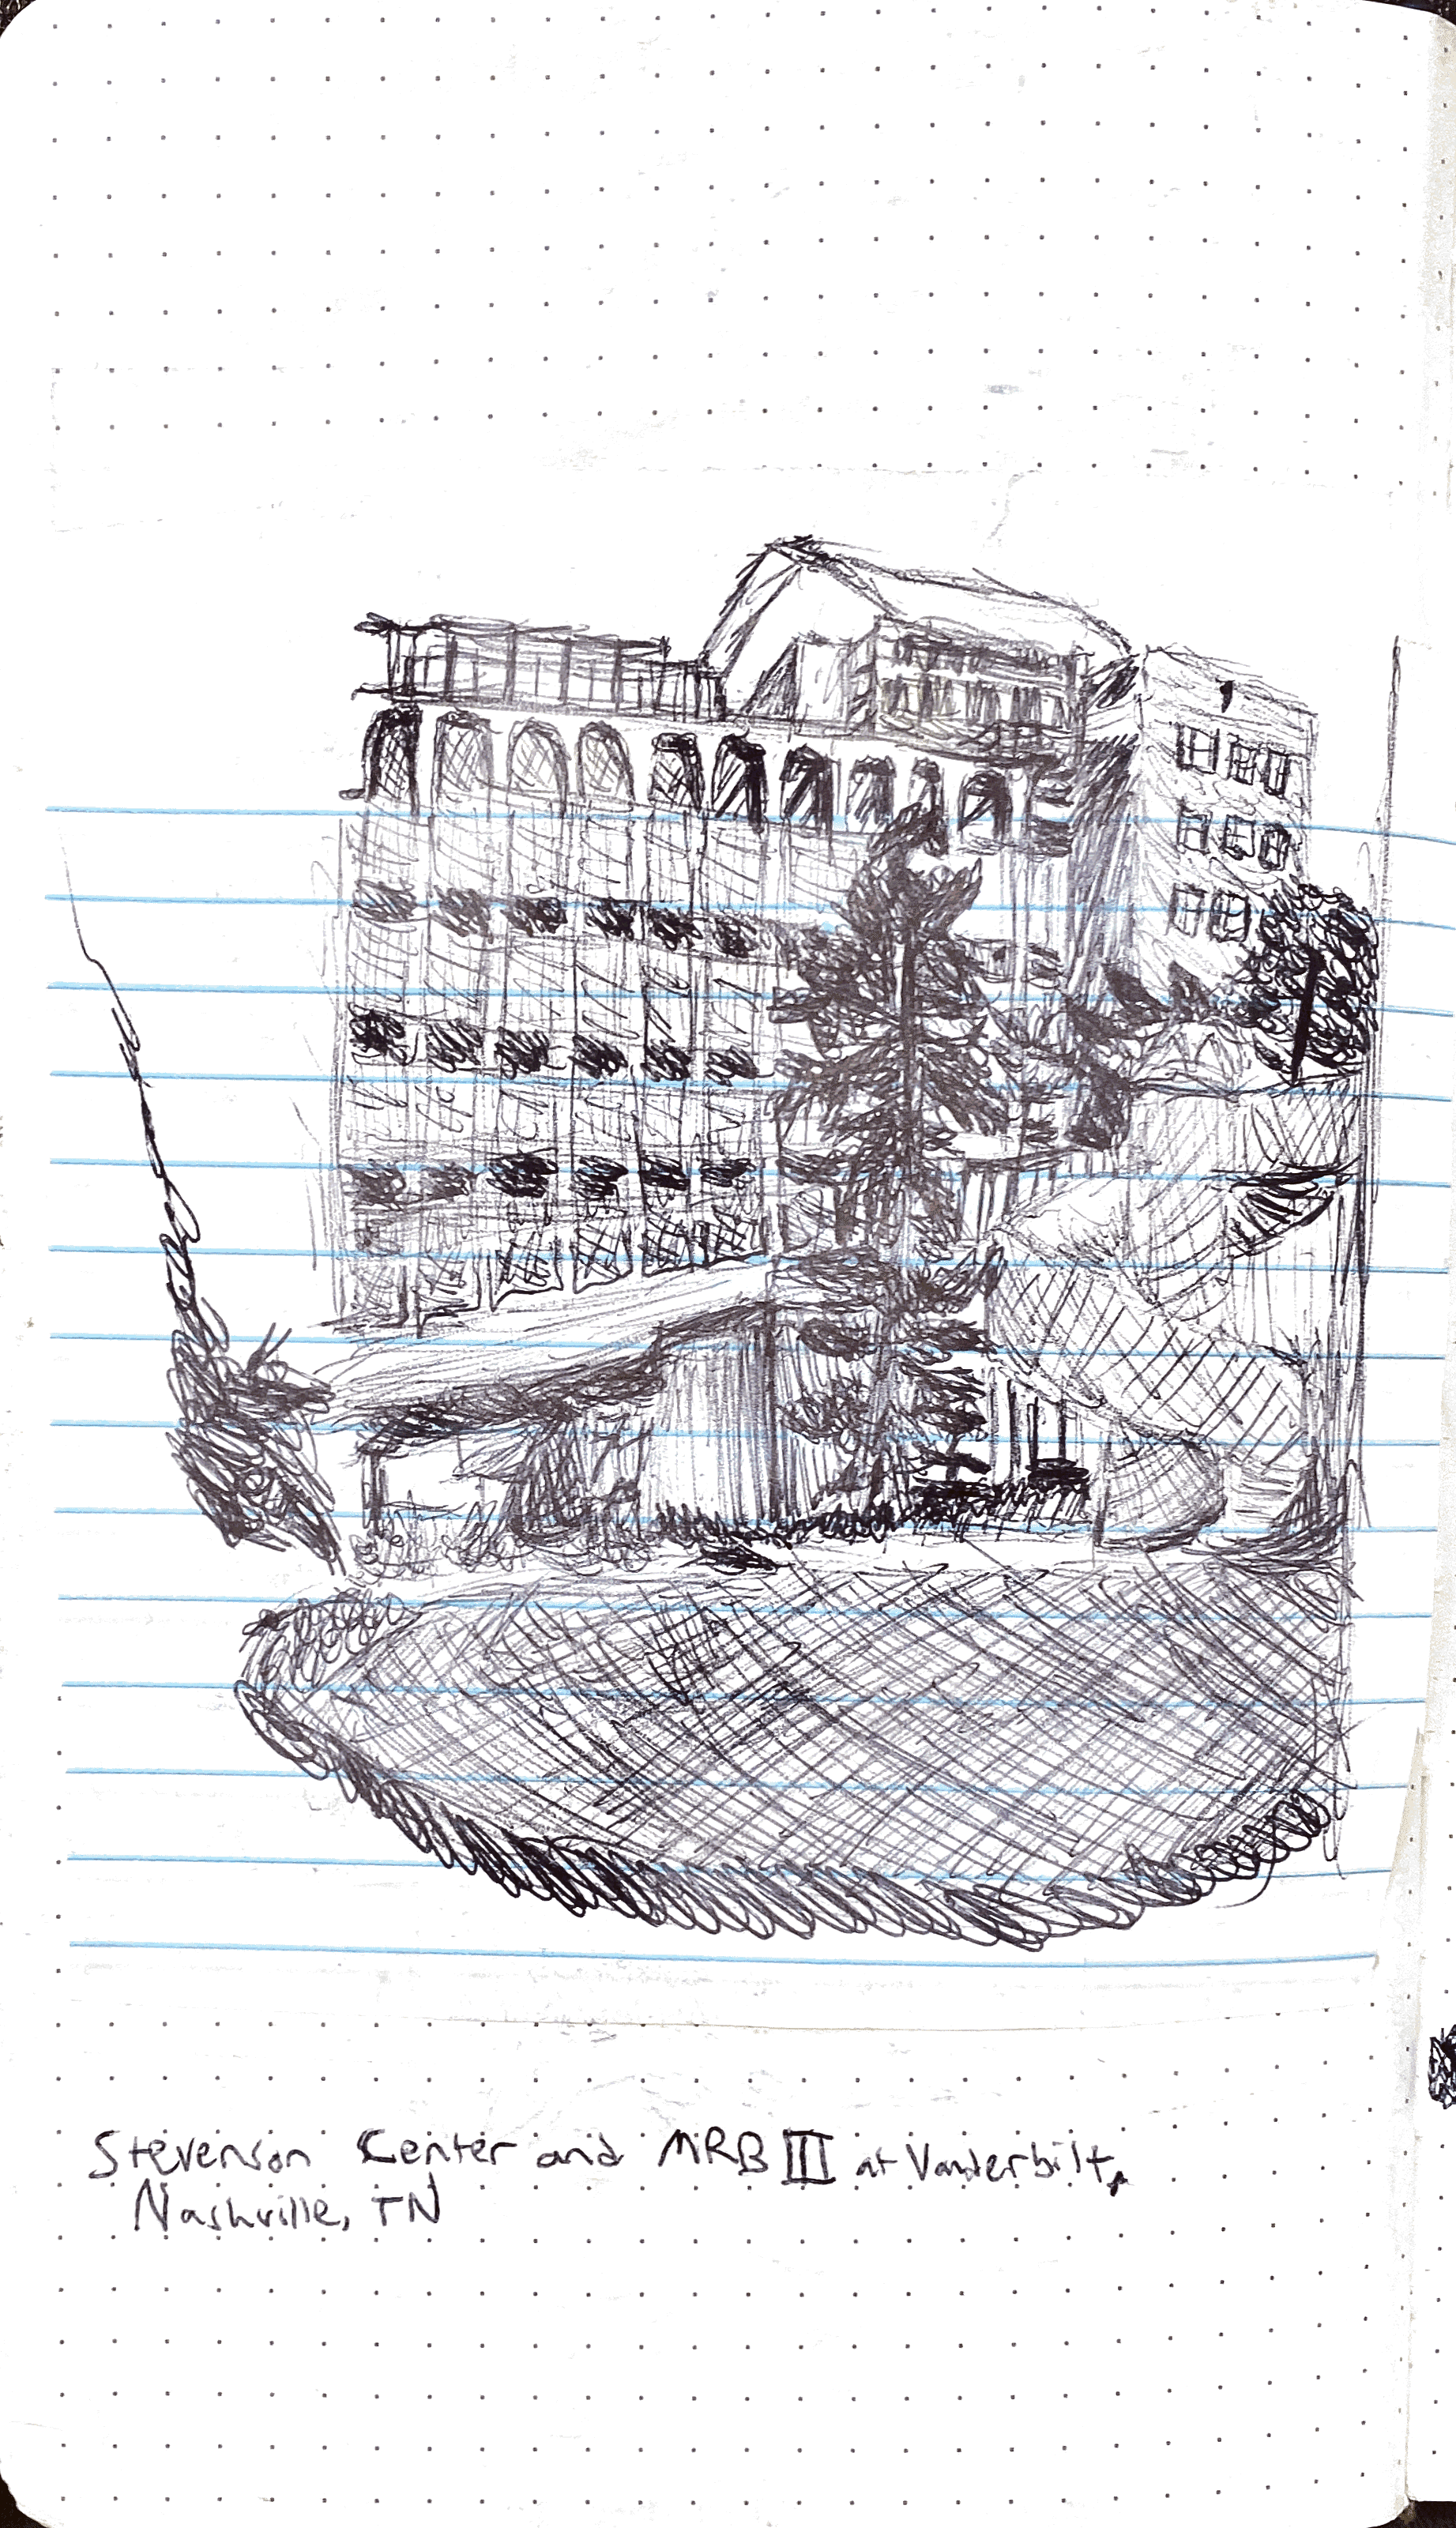 Stevenson Center and MRB III at Vanderbilt,
Nashville, TN